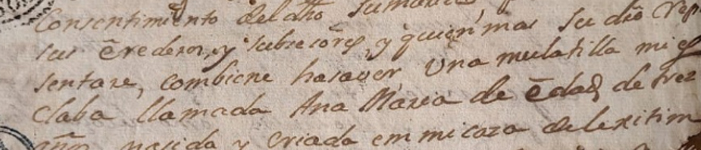 Consentimiento del dho
sus Erederos, y subresôres, y quien mas su dro rep
sentare, combiene hasauer Una mulatilla mi es
claba llamada Ana Maria de Edad de trez
años nasida y criada em mi caza de lexitim